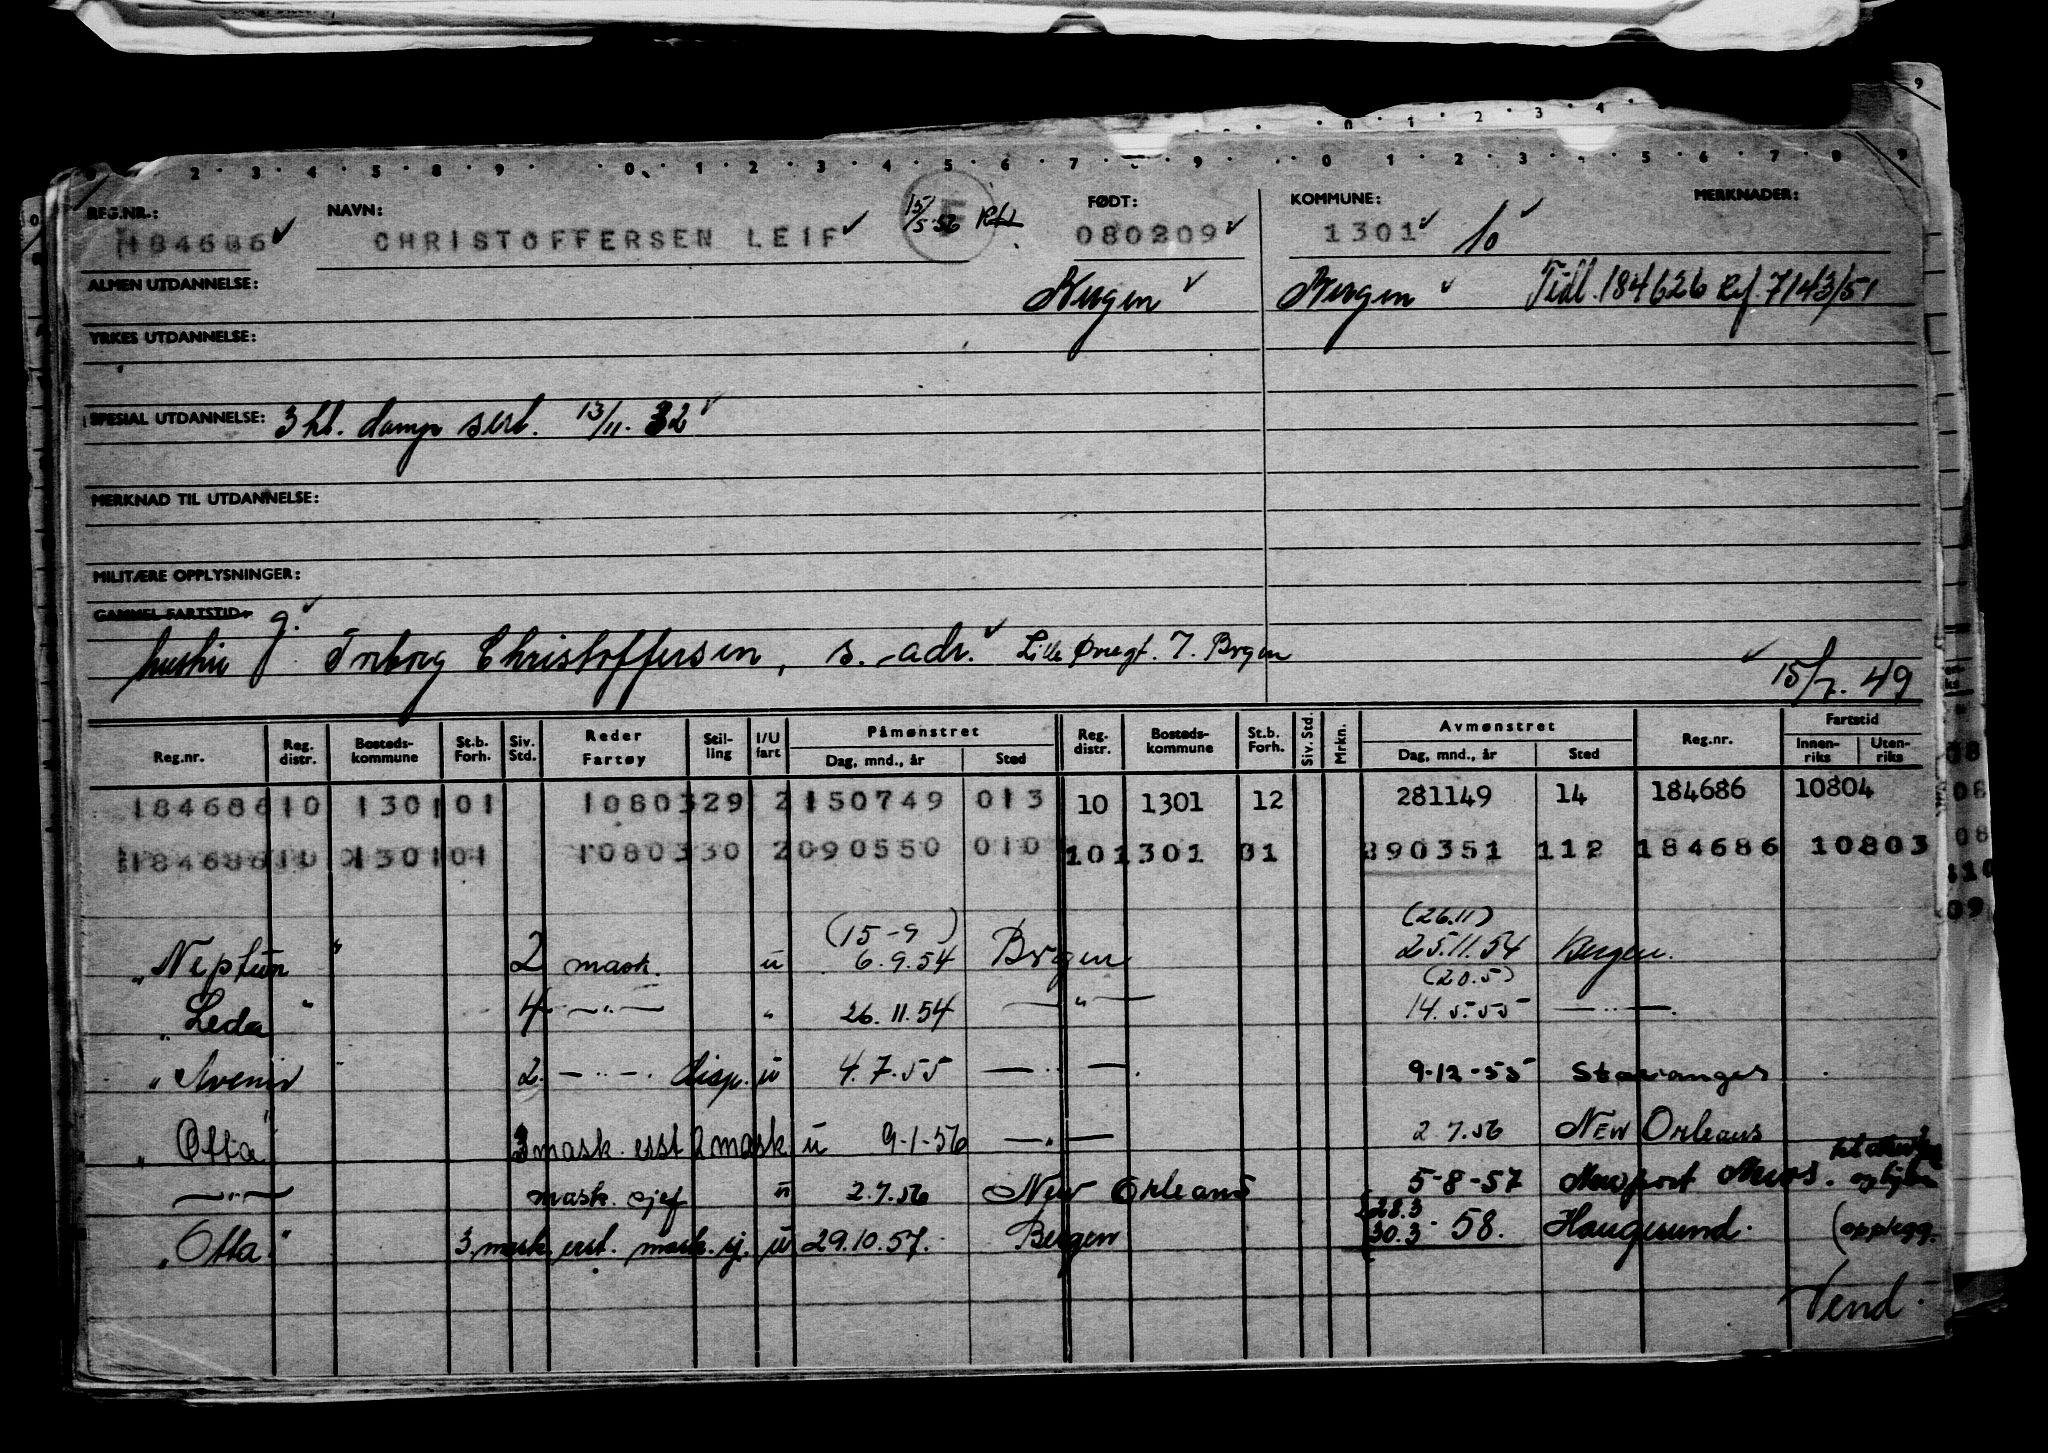 0 1 2 3 4
9
2 3 4 5 8 9 0 1 2 3 4 5 6 7 8 9 0 1 2 3 4 5 6 7 8 9
REG.NR.: NAVN: FØDT: KOMMUNE: MERKNADER:
184686 CHRISTOFFERSEN LEIF 15/5-56 F 080209 1301 10
ALMEN UTDANNELSE: Bergen Bergen Tidl. 184626 Ref. 7143/51
YRKES UTDANNELSE:
SPESIAL UTDANNELSE: 3 kl. damp sert. 13/11. 32
MERKNAD TIL UTDANNELSE:
MILITÆRE OPPLYSNINGER:
GAMMEL FARTSTID: g.
hustru Torborg Christoffersen, s. adr. Lille Øvregt. 7. Brgen
15/7. 49
Reg.nr. Reg. distr. Bosteds-kommune St.b. Forh. Siv. Std. Reder Fartøy Stil-ling I/U fart Påmønstret Dag, mnd., år Sted Reg. distr. Bosteds-kommune St.b. Forh. Siv. Std. Mrkn. Avmønstret Dag, mnd., år Sted Reg.nr. Fartstid Innen-riks Uten-riks
184686 10 1301 01 10803 29 2 150749 013 10 1301 12 281149 14 184686 10804
184686 10 1301 01 10803 30 2 090550 010 10 1301 01 290351 112 184686 10803
(15-9) (26.11)
"Neptun" 2 mask. u 6.9.54 Brgen 25.11.54 Bergen.
(20.5)
"Leda" 4 —"— " 26.11.54 —"— 14.5.55 —"—.
"Avenir" 2. —"—. disp. u 4.7.55 —"—. 9-12-55 Stavanger
"Otta" 3 mask. erst 2 mask u 9-1-56 —"— 2 7.56 NEW Orleans
—"— mask. sjef u 2.7.56 New Orleans 5-8-57 Newport News.
28.3
"Otta" 3. mask. erst. mask. sj. u 29.10.57. Bergen 30.3-58. Haugesund. (opplegg.
Vend.